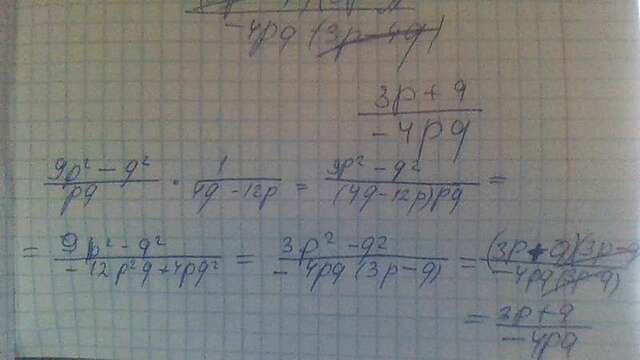 -4pq (3p-4q)
3p+q / -4pq
9p² - q² / pq · 1 / 4q - 12p = 9p² - q² / (4q-12p)pq =
= 9p² - q² / -12p²q + 4pq² = 3p² - q² / -4pq (3p-q) = (3p+q)(3p- / -4pq(3p-q)
= 3p+q / -4pq